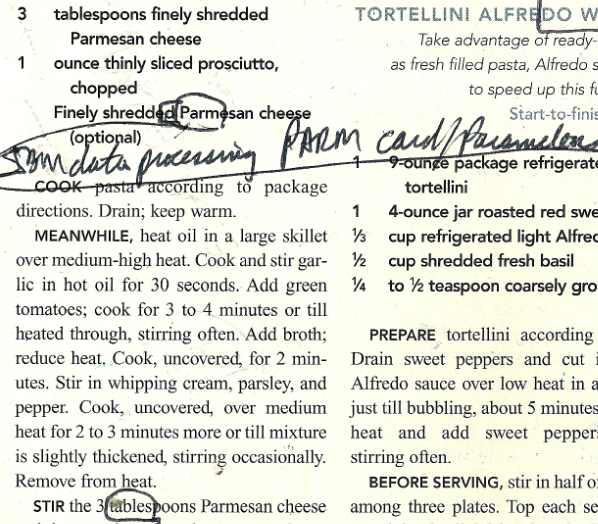 3 tablespoons finely shredded
Parmesan cheese
1 ounce thinly sliced prosciutto,
chopped
Finely shredded Parmesan cheese
(optional)
IBM data processing PARM card/Parameters
COOK pasta according to package
directions. Drain; keep warm.
MEANWHILE, heat oil in a large skillet
over medium-high heat. Cook and stir gar-
lic in hot oil for 30 seconds. Add green
tomatoes; cook for 3 to 4 minutes or till
heated through, stirring often. Add broth;
reduce heat. Cook, uncovered, for 2 min-
utes. Stir in whipping cream, parsley, and
pepper. Cook, uncovered, over medium
heat for 2 to 3 minutes more or till mixture
is slightly thickened, stirring occasionally.
Remove from heat.
STIR the 3 tablespoons Parmesan cheese
TORTELLINI ALFREDO W
Take advantage of ready-
as fresh filled pasta, Alfredo s
to speed up this fu
Start-to-finis
1 9-ounce package refrigerate
tortellini
1 4-ounce jar roasted red swe
⅓ cup refrigerated light Alfred
½ cup shredded fresh basil
¼ to ½ teaspoon coarsely gro
PREPARE tortellini according
Drain sweet peppers and cut i
Alfredo sauce over low heat in a
just till bubbling, about 5 minutes
heat and add sweet peppers
stirring often.
BEFORE SERVING, stir in half of
among three plates. Top each se